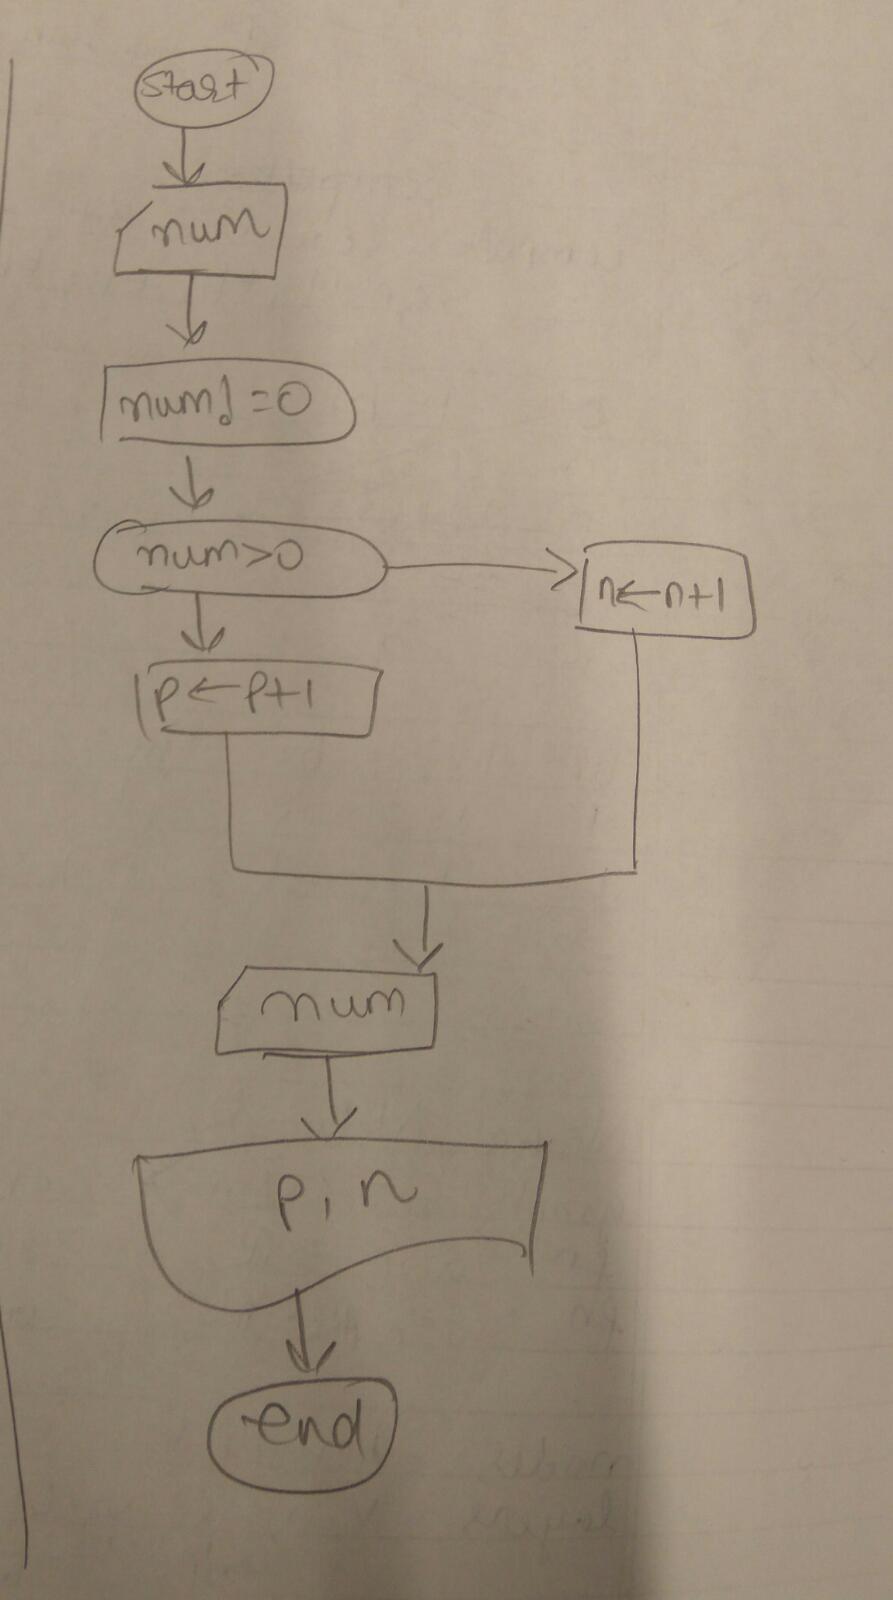 start
num
num!=0
num>0
n←n+1
p←p+1
num
p, n
end